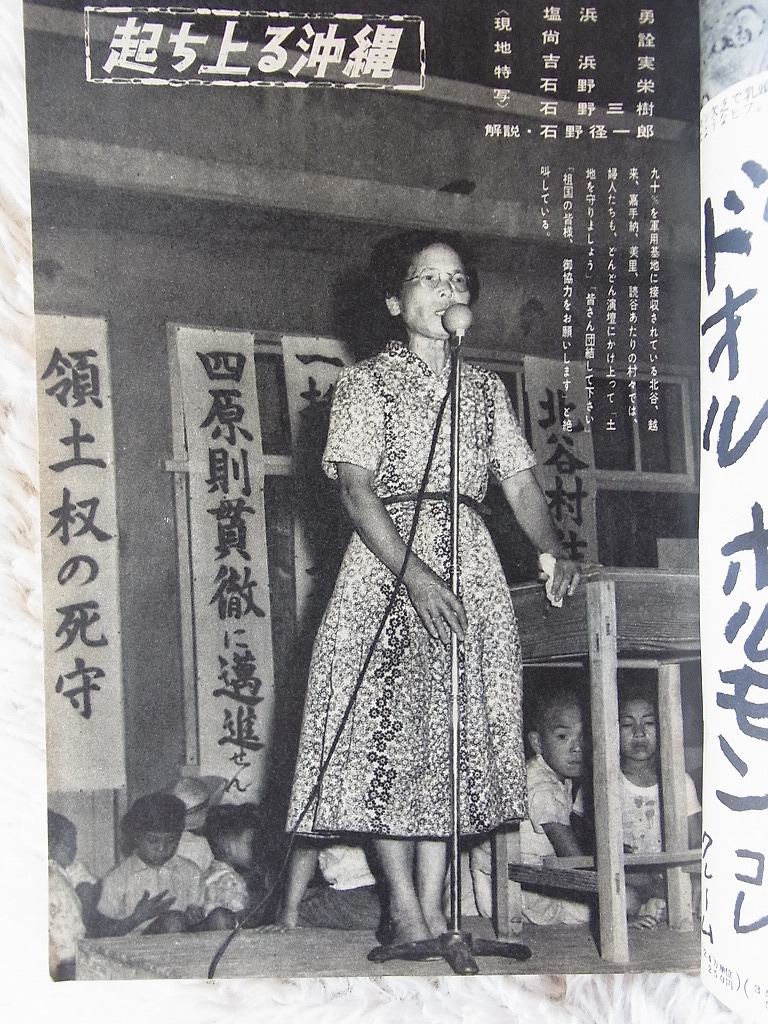 起ち上る沖縄
塩浜 勇
尚 詮
吉浜 実
石野 栄
石野三樹
解説・石野径一郎
〈現地特写〉
九十％を軍用基地に接収されている北谷、越
来、嘉手納、美里、読谷あたりの村々では、
婦人たちも、どんどん演壇にかけ上って「土
地を守りましょう」「皆さん団結して下さい
「祖国の皆様、御協力をお願いします」と絶
叫している。
北谷村
一括
四原則貫徹に邁進せん
領土权の死守
ドオル ホルモン
クレーム
コレ